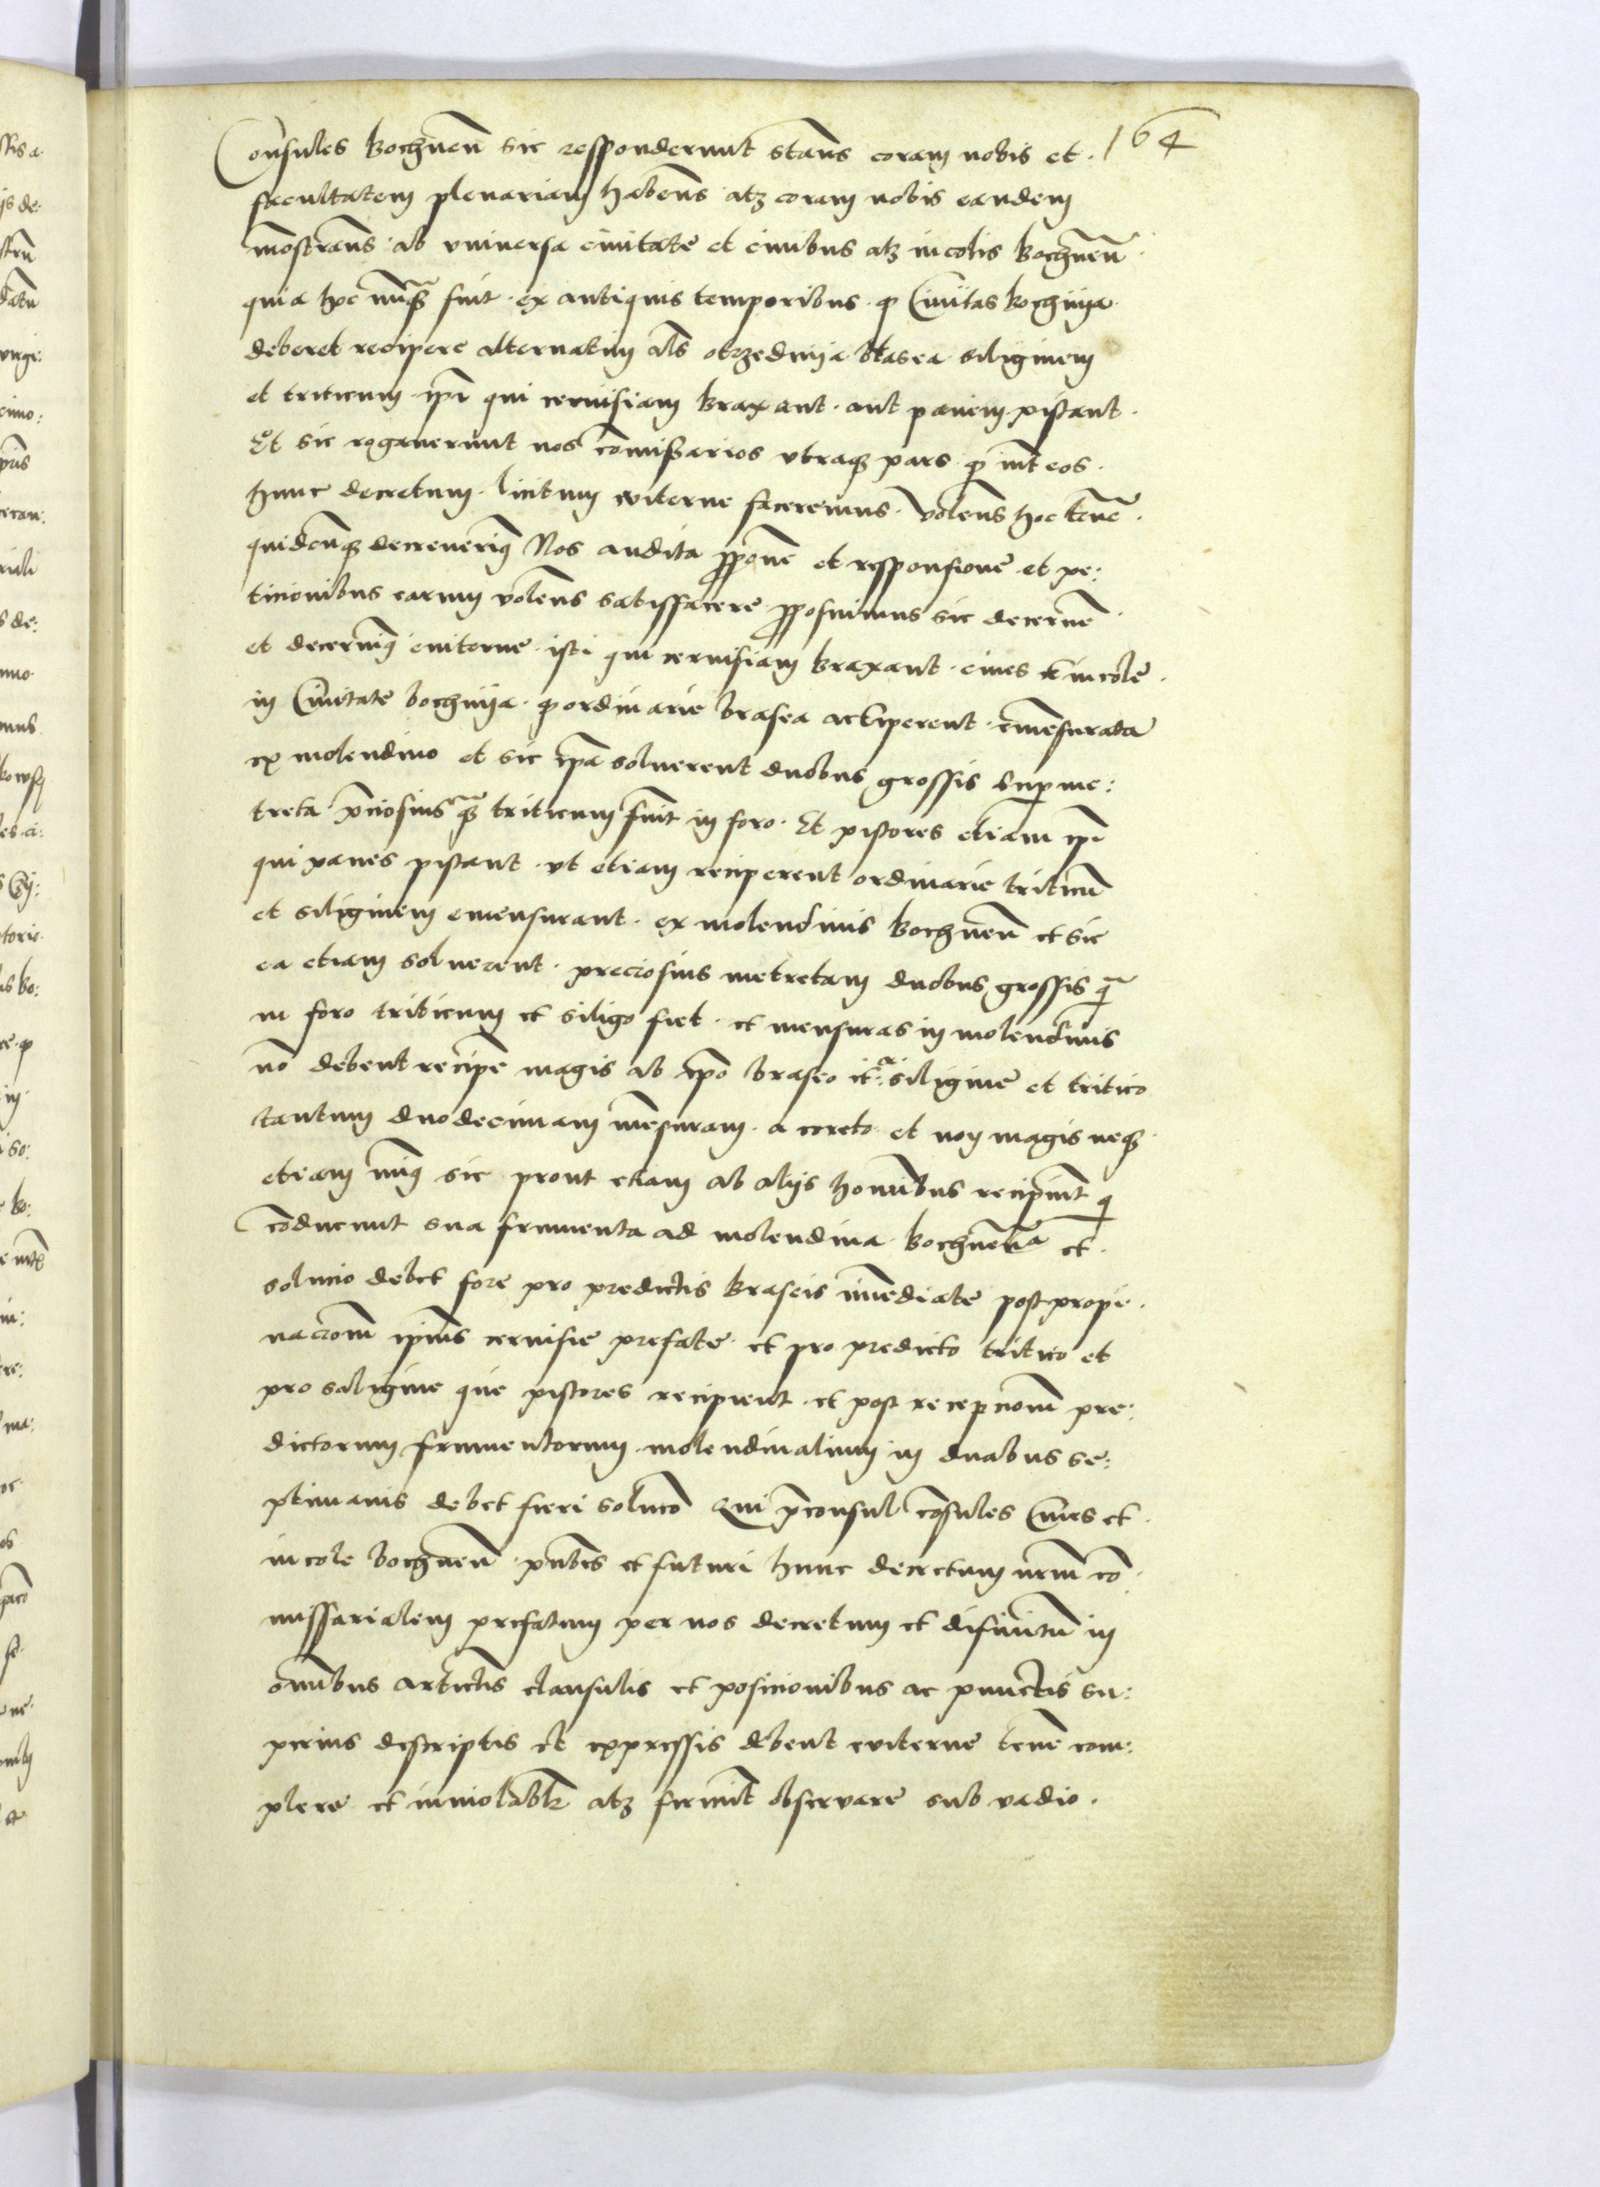 Consules Bochnen̄ sic responderunt stan̄s coram nobis et · 164
facultatem plenariam haben̄s atq3 coram nobis eandem
mōstran̄s · ab vniuersa ciuitate et ciuibus atq3 incolis Bochnen̄ ·
quia hoc nunq̄3 fuit · ex antiquis temporibus · q Ciuitas Bochnija ·
deberet recipere alternatim al̄s obrzednija brasea siliginem
et triticum · ip̄i qui ceruisiam braxant · aut panem pistant ·
Et sic rogauerunt nos com̄issarios vtraq3 pars · q̄ int̄ eos ·
hunc decretum · licitum eviterne faceremus · Volen̄s hoc ten̄e ·
quidcunq3 decreuerim9 Nos audita p̄pone et responsione et pe:
ticionibus earum volen̄s satisfacere p̄posuimus sic decern̄e ·
et decernim9 euiterne · isti qui ceruisiam braxant · ciues et incole ·
in Ciuitate bochnija · q ordinarie brasea acciperent · emēsurata
ex molendino et sic ip̄a soluerent duobus grossis sup me:
treta · p̄ciosius q̄3 triticum fuit in foro · Et pistores etiam ip̄i
qui panes pistant · vt etiam reciperent ordinarie triticū
et siliginem emensurant · ex molendinis Bochnen̄ et sic
ea etiam soluerent · preciosius metretam duobus grossis q̄
in foro triticum et siligo fiet · et mensuras in molendinis
nō debent recipe magis ab ip̄o braseo it siligine et tritico
tantum duodecimam mēsuram · a coreto et non magis neq3 ·
etiam min9 sic prout etiam ab alijs hominibus recipiunt q
conducunt sua frumenta ad molendina Bochnen̄a et ·
solucio debet fore pro predictis braseis im̄ediate post propi ·
nacioem ipius ceruisie prefate · et pro predicto tritico et
pro saligine que pistores recipient · et post recepcioem pre:
dictorum frumentorum molendinalium in duabus se:
ptimanis debet fieri solucō Qui p̄consul cōsules Ciues et ·
incole bochnen̄ · pn̄tes et futuri hunc decretum nrm̄ cō ·
missarialem prefatum per nos decretum et difinitū in
om̄ibus articl̄is clausulis et posicionibus ac punctis su:
perius descriptis et expressis debent eviterne ten̄e com:
plere et inuiolabilr atq3 firmit̄ obseruare sub vadio ·